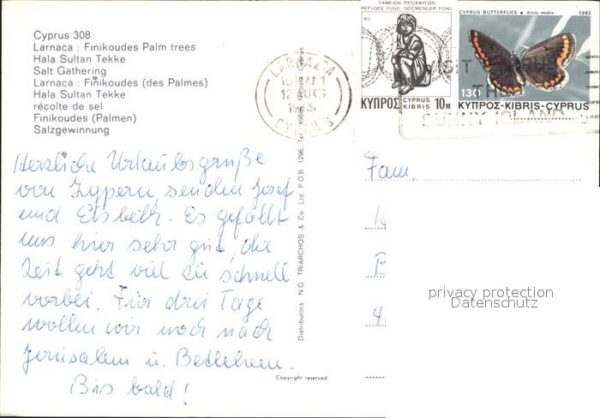 Cyprus 308
Larnaca : Finikoudes Palm trees
Hala Sultan Tekke
Salt Gathering
Larnaca : Finikoudes (des Palmes)
Hala Sultan Tekke
récolte de sel
Finikoudes (Palmen)
Salzgewinnung
Herzliche Urlaubsgrüße
von Zypern, senden Josef
und Elsbeth. Es gefällt
uns hier sehr gut, die
Zeit geht viel zu schnell
vorbei. Für drei Tage
wollen wir noch nach
Jerusalem u. Bethlehem.
Bis bald!
Distributors N.G. TRIARCHOS & Co Ltd. P.O.B. 1296
Copyright reserved
LARNACA
CYPRUS
REFUGEE FUND GÖÇMENLER FONU
ΚΥΠΡΟΣ CYPRUS KIBRIS 10M
CYPRUS BUTTERFLIES 1983
130
ΚΥΠΡΟΣ-KIBRIS-CYPRUS
VISIT
THE
SUNNY ISLAND
Fam
privacy protection
Datenschutz